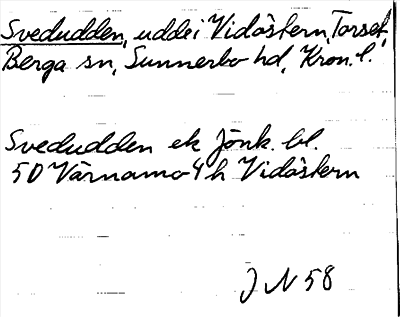 Svedudden, udde i Vidöstern, Torset,
Berga sn, Sunnerbo hd, Kron. l.
Svedudden ek Jönk. bl.
50 Värnamo 4 h Vidöstern
J N 58